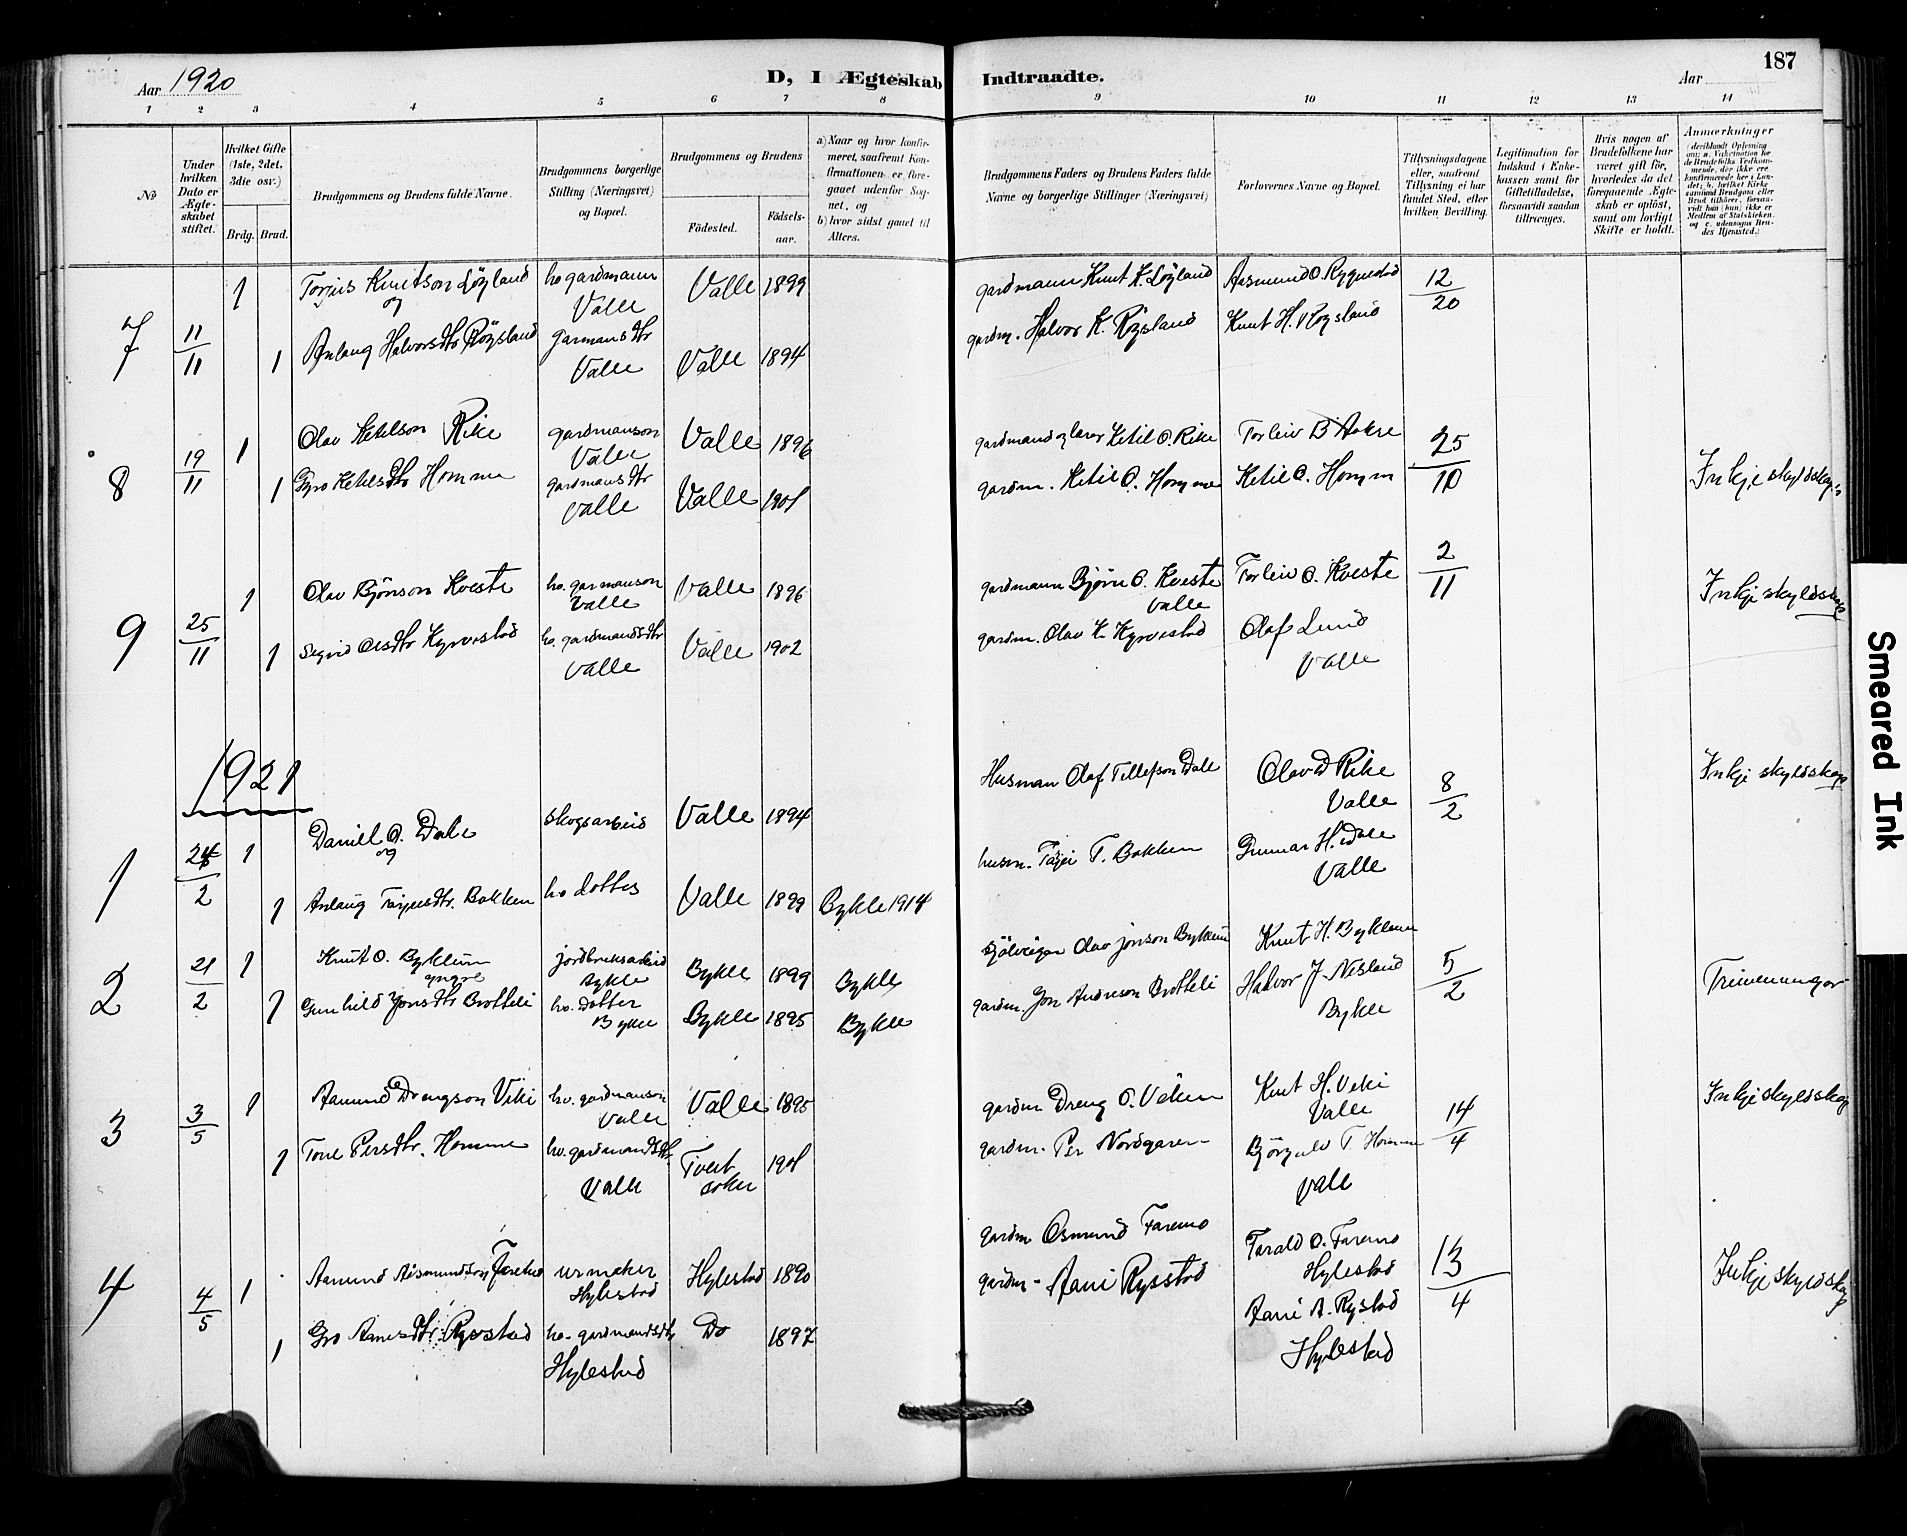 187
Aar 1920
D, I Ægteskab Indtraadte.
Aar
1 2 3 4 5 6 7 8 9 10 11 12 13 14
No
Under hvilken Dato er Ægteskabet stiftet.
Hvilket Gifte (1ste, 2det, 3die osv.)
Brdg. Brud.
Brudgommens og Brudens fulde Navne.
Brudgommens borgerlige Stilling (Næringsvei) og Bopæl.
Brudgommens og Brudens
Födested.
Födselsaar.
a) Naar og hvor konfirmeret, saafremt Konfirmationen er foregaaet udenfor Sognet, og
b) hvor sidst gaaet til Alters.
Brudgommens Faders og Brudens Faders fulde Navne og borgerlige Stillinger (Næringsvei)
Forlovernes Navne og Bopæl.
Tillysningsdagene eller, saafremt Tillysning ei har fundet Sted, efter hvilken Bevilling.
Legitimation for Indskud i Enkekassen samt for Giftetilladelse, forsaavidt saadan tiltrænges.
Hvis nogen af Brudefolkene har været gift för, hvorledes da det foregaaende Ægteskab er oplöst, samt om lovligt Skifte er holdt.
Anmærkninger
7 11/11 1 Torjus Knutson Løyland hv gardmann Valle Valle 1899 gardmann Knut K. Løyland Aasmund O. Rygnestad 12/20
og
1 Anlaug Halvorsdtr Røysland garmansdtr Valle Valle 1894 gardm. Halvor K. Røysland Knut H. Røysland
8 19/11 1 Olav Ketelson Rike gardmanson Valle Valle 1896 gardmand og lærer Ketil O. Rike Torleiv B Aakre 25/10
1 Gyro Ketelsdtr Homme gardmansdtr Valle Valle 1901 gardm. Ketil O. Homme Ketil O. Homm Inkje skyldskap
9 25/11 1 Olav Bjønson Kveste hv. garmanson Valle Valle 1896 gardmann Bjørn O. Kveste Valle Torleiv O. Kveste 2/11 Inkje skyldskap
1 Sigrid Olsdtr Kyrvestad hv. gardmandsdtr Valle Valle 1902 gardm. Olav K. Kyrvestad Olaf Lund Valle
1921
1 24/2 1 Daniel O. Dale skogsarbeid Valle 1894 Husman Olaf Tellefson Dale Olav D Rike Valle 8/2 Inkje skyldskap
og
1 Anlaug Tarjeisdtr. Bakken hv dotter Valle 1899 Bykle 1914 husm. Tarjei T. Bakken Gunnar H. Dale Valle
2 21/2 1 Knut O. Byklum yngre jordbruksarbeid Bykle Bykle 1899 Bykle Sjølveigar Olav Jonson Byklum Knut H. Byklum 5/2
1 Gunhild Jonsdtr Brotteli hv. dotter Bykle Bykle 1895 Bykle gardm. Jon Andreson Brotteli Halvor J. Nesland Bykle Trimenningar
3 3/5 1 Aamund Drengson Viki hv. gardmanson Valle Valle 1895 gardm Dreng O. Viken Knut H. Viki Valle 14/4 Inkje skyldskap
1 Tone Persdtr. Homme hv. gardmandsdtr. Valle Tveit soken 1901 gardm. Per Nordgaren Bjørgulv T. Homme Valle
4 4/5 1 Aamund Aasmundson Faremo urmaker Hylestad Hylestad 1890 gardm Osmund Faremo Tarald O. Faremo Hylestad 13/4 Inkje skyldskap
1 Gro Aanesdtr. Rysstad hv. gardmandsdtr Hylestad Do 1897 gardm. Aani Rysstad Aani A. Rystad Hylestad
Smeared Ink